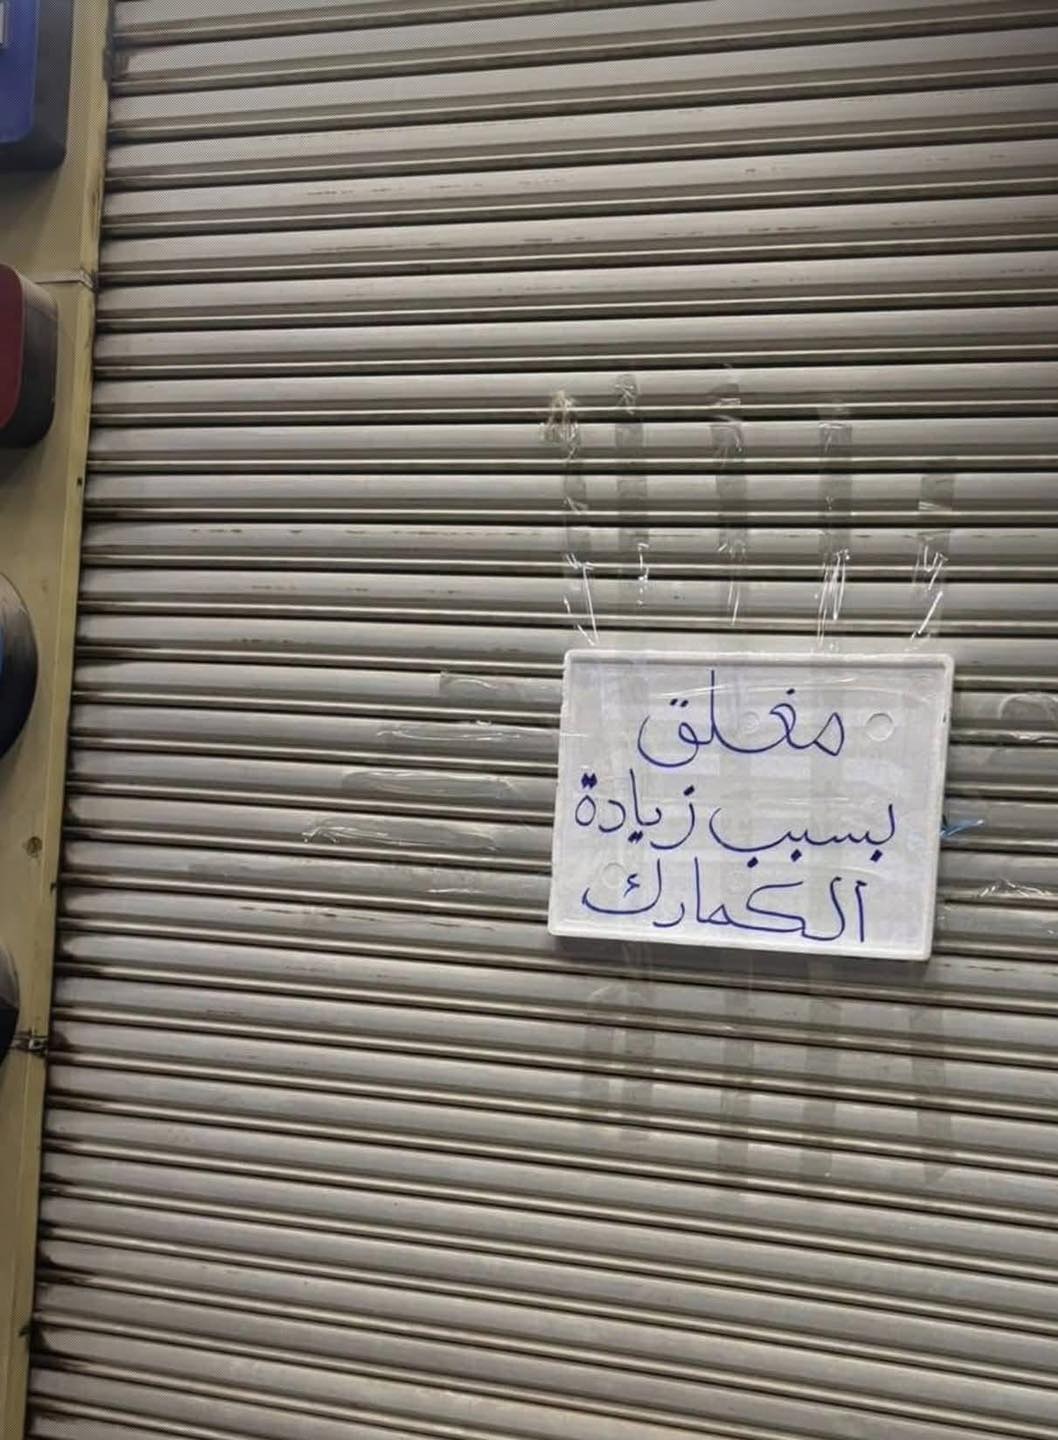 مغلق
بسبب زيادة
الكمارك